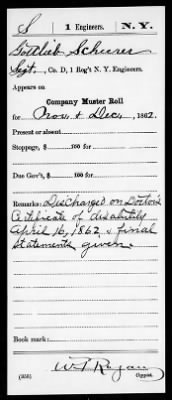 S 1 Engineers. N.Y.
Gottlieb Scheerer
Sgt., Co. D, 1 Reg't N. Y. Engineers.
Appears on
Company Muster Roll
for Nov & Dec, 1862.
Present or absent
Stoppage, $ 100 for
Due Gov't, $ 100 for
Remarks: Discharged on Doctor's
Certificate of disability
April 16, 1862 & final
statements given.
Book mark:
(358) Copyist.